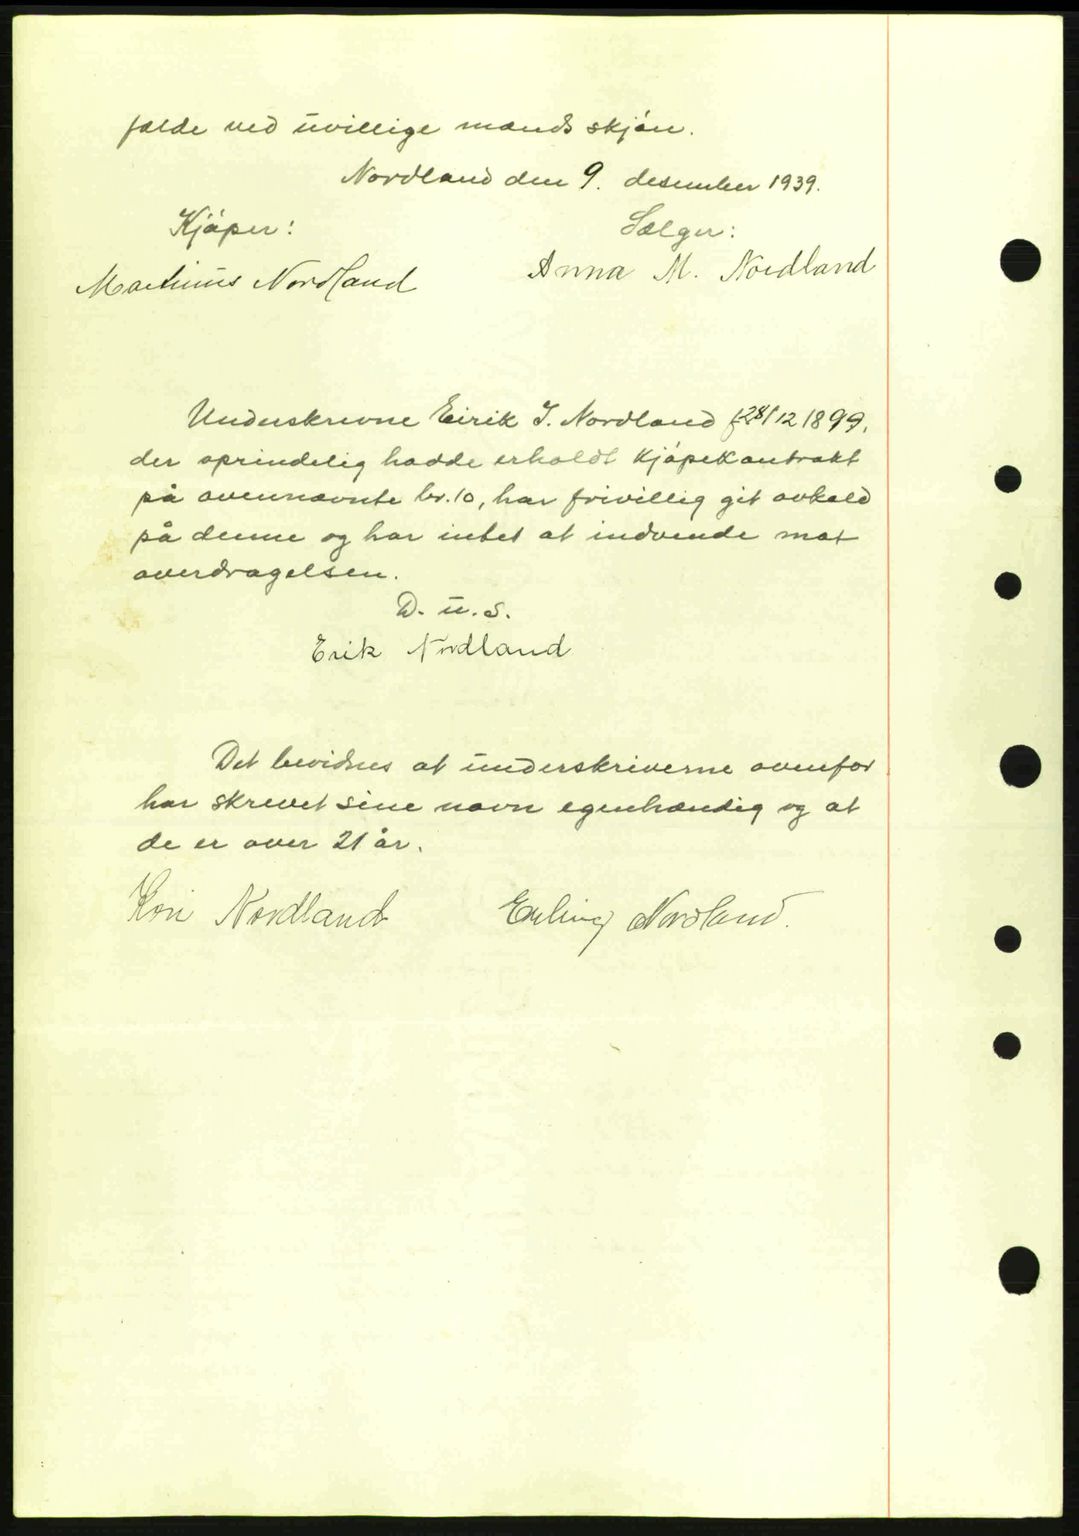 falde ved uvillige mænds skjøn.
Nordland den 9. desember 1939.
Kjøper: Sælger:
Martinus Nordland Anna M. Nordland
Underskrevne Eirik I. Nordland f 28/12 1899,
der oprindelig hadde erholdt kjøpekontrakt
på ovennævnte br. 10, har frivillig git avkald
på denne og har intet at indvende mot
overdragelsen.
D. u. s.
Erik Nordland
Det bevidnes at underskriverne ovenfor
har skrevet sine navn egenhændig og at
de er over 21 år.
Kari Nordland Erling Nordland.